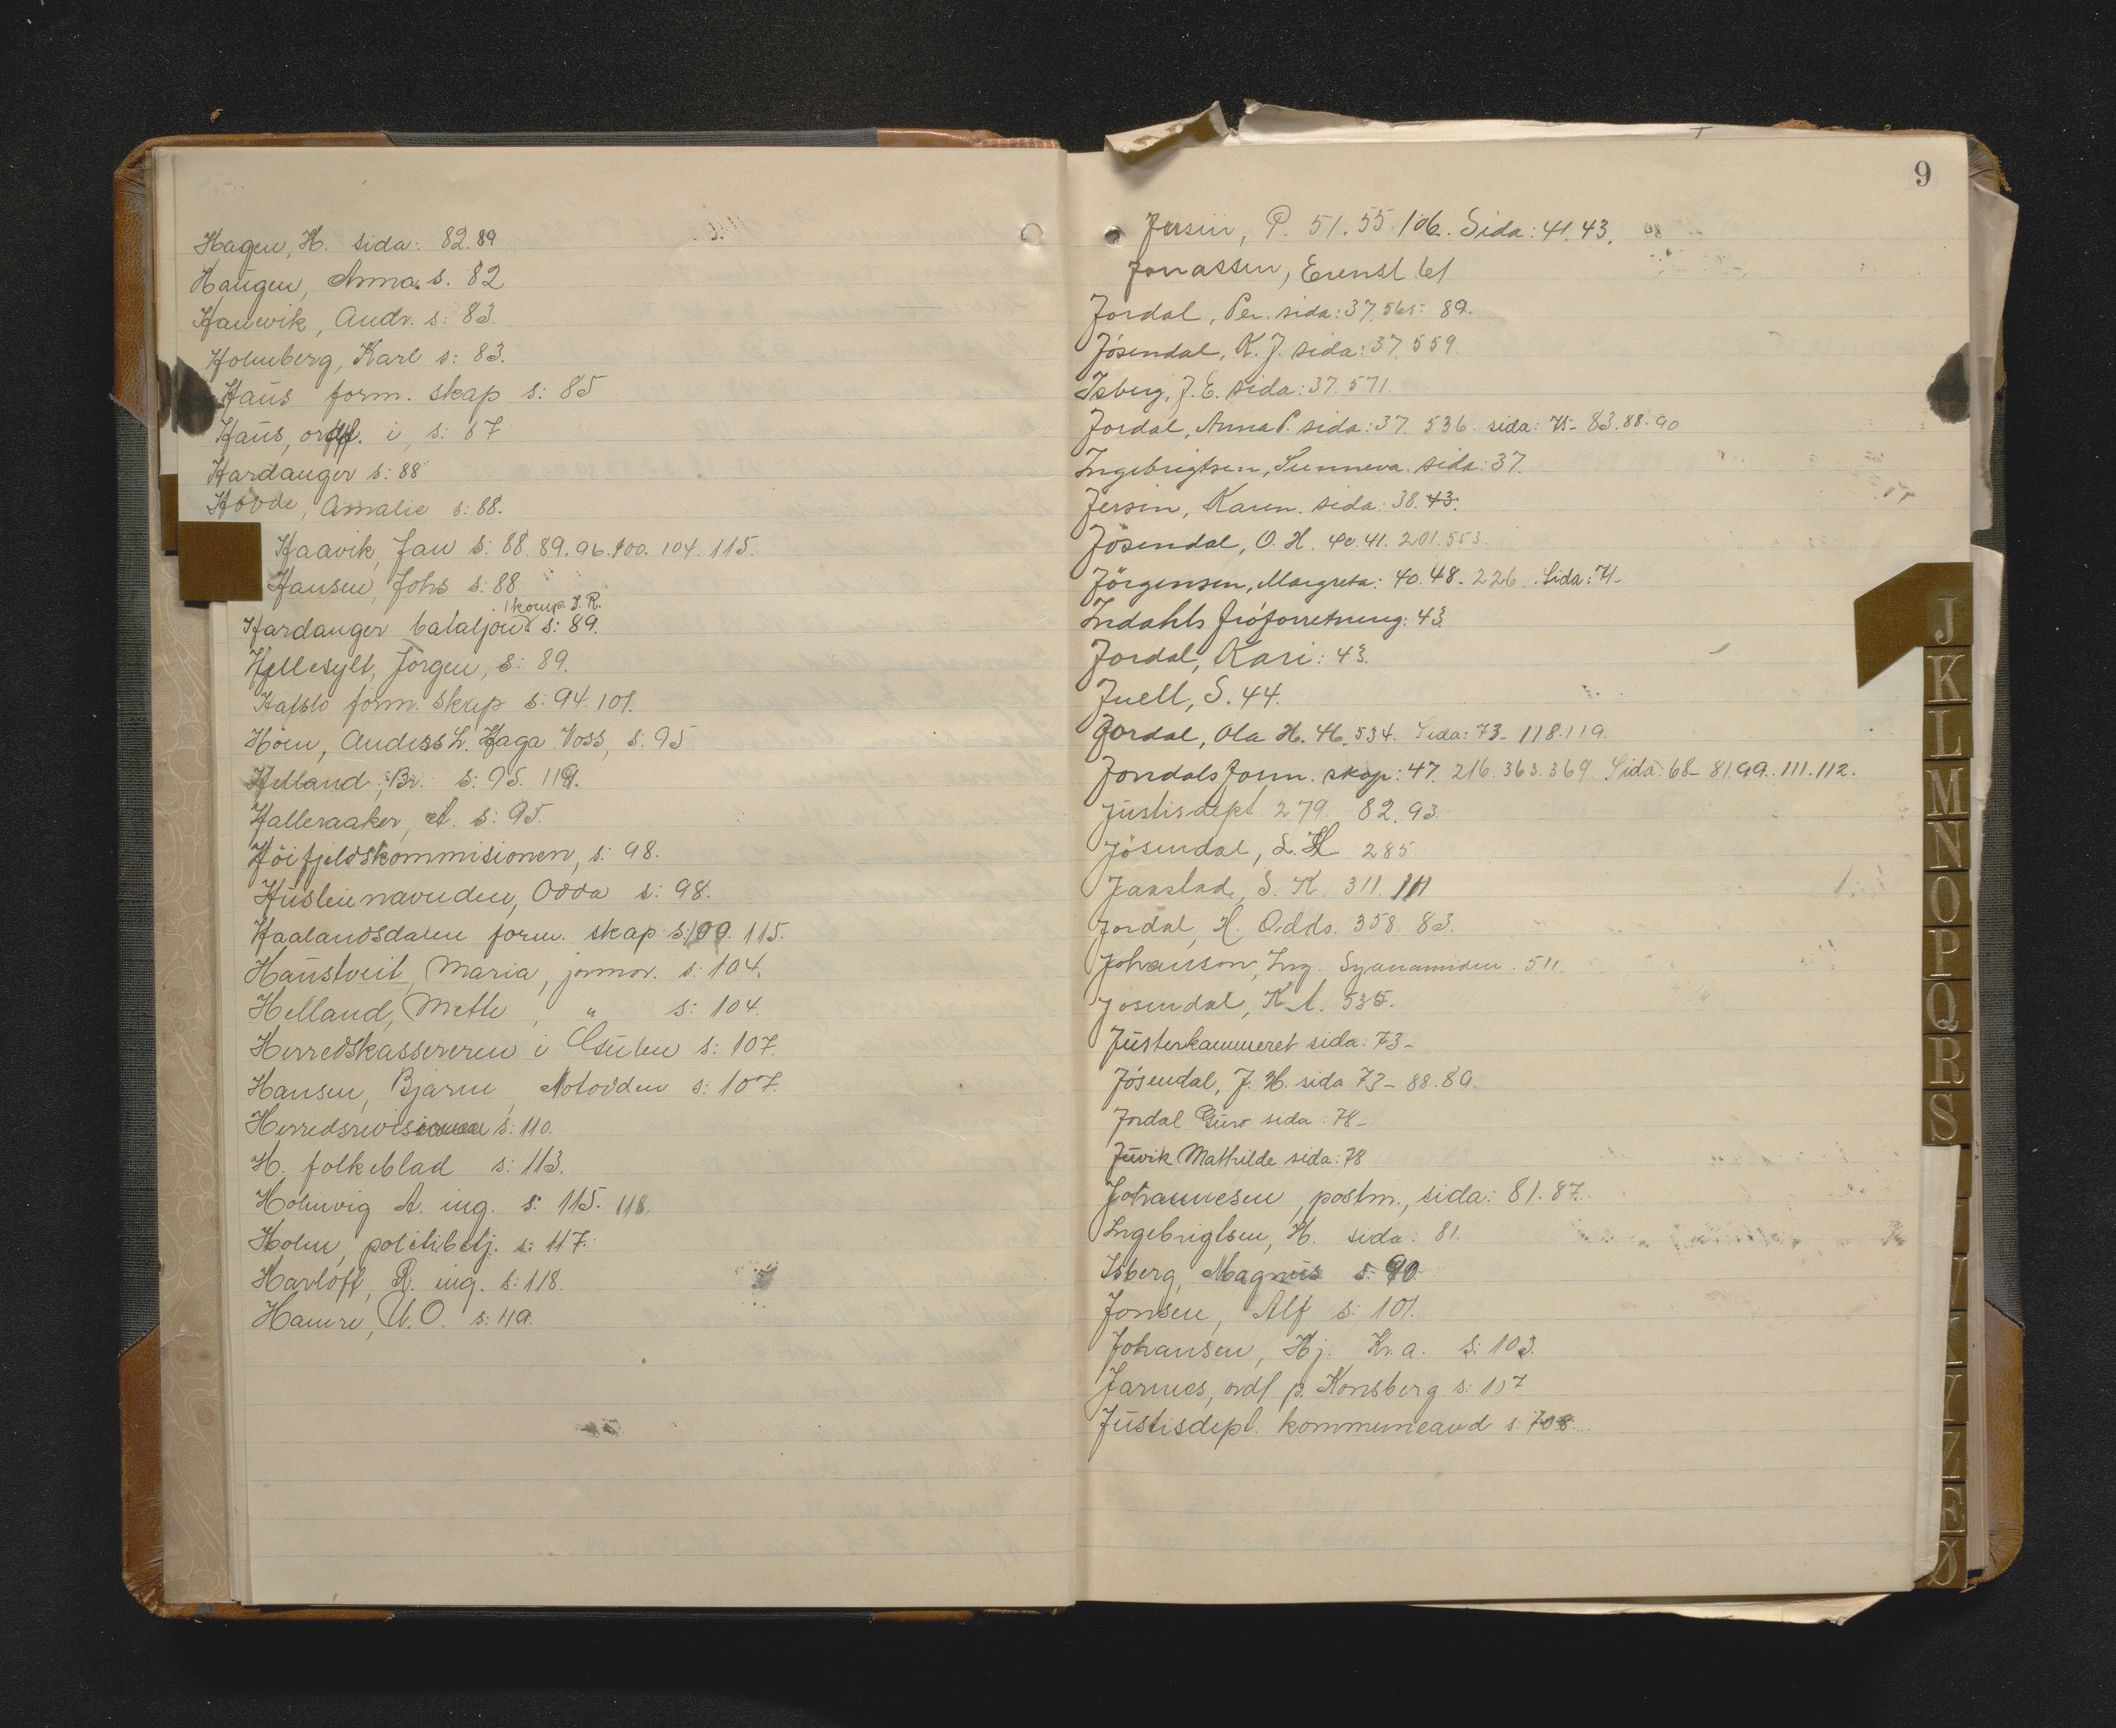 Hagen, H. sida: 82.89
Haugen, Anna. s. 82
Hauvik, Andr. s: 83.
Holmberg, Karl s: 83.
Haus form. skap s: 85
Haus, ordf. i, s: 87
Hardanger s: 88
Hovde, Amalie s: 88.
Haavik, Jan s: 88. 89. 96. 100. 104. 115.
Hansen, Johs s: 88
1 komp. I. R.
Hardanger bataljon s: 89.
Hellesylt, Jørgen, s: 89.
Hafslo form. skap s: 94. 101.
Höen, Anders L. Haga Voss, s: 95
Helland, Br. s: 95. 119.
Halleraaker, A. s: 95.
Höifjeldskommisionen, s: 98.
Husleienævnden, Odda s: 98.
Haalandsdalen form. skap s: 100. 115.
Haustveit, Maria, jormor. s: 104.
Helland, Mette, " s: 104.
Herredskassereren i Gulen s: 107.
Hansen, Bjarne, Notodden s: 107.
Herredsrevisionen s: 110.
H. folkeblad s: 113.
Holmvig A. ing. s: 115. 118.
Holm, politibetj. s: 117.
Harloff, R. ing. s: 118.
Hamre, U. O. s: 119.
9
Jersin, P. 51. 55. 106. Sida: 41. 43.
Jonassen, Erenst 61
Jordal, Per. sida: 37. 565. 89.
Jösendal, K. J. sida: 37. 559.
Isberg, J. E. sida: 37. 571.
Jordal, Anna P. sida: 37. 536. sida: 75- 83. 88. 90
Ingebrigtsen, Sunneva. sida: 37.
Jersin, Karen. sida: 38. 43.
Jösendal, O. H. 40. 41. 201. 553.
Jörgensen, Margreta: 40. 48- 226. Sida: 71-
Indahls fröforretning: 43.
Jordal, Kari: 43.
Juell, S. 44.
Jordal, Ola H. 46. 534. Sida: 73- 118. 119.
Jondals form. skap: 47. 216. 363. 369. Sida: 68- 81. 99. 111. 112.
Justisdept. 279. 82. 93.
Jösendal, L. H. 285.
Jaastad, S. K. 311. 111
Jordal, H. Odda. 358. 83.
Johanson, Ing. Syanamiden. 511.
Jösendal, K. A. 535.
Justerkammeret sida: 73-
Jösendal, J. H. sida 73- 88. 89.
Jordal Guro sida: 78-
Juvik Mathilde sida: 78
Johannesen, postm., sida: 81. 87.
Ingebrigtsen, H. sida: 81.
Isberg, Magnus s: 90
Jonsen, Alf s: 101.
Johansen, Hj. Kr.a. s: 103.
Jarnes, ordf. p. Konsberg s: 107
Justisdept. kommuneavd s. 108.
J
K
L
M
N
O
P
Q
R
S
Z
Æ
Ø